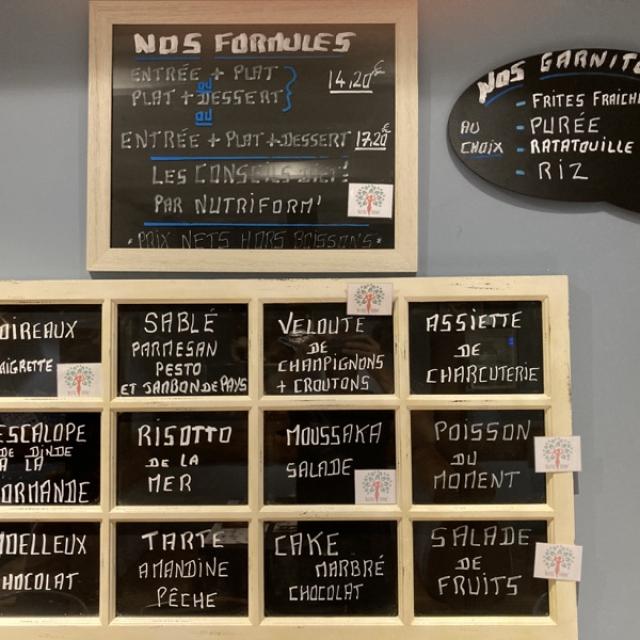 NOS FORMULES
ENTRÉE + PLAT
ou
PLAT + DESSERT
14,20€
ou
ENTRÉE + PLAT + DESSERT 17,20€
LES CONSEILS DIET'
PAR NUTRIFORM'
* PRIX NETS HORS BOISSONS *
NOS GARNIT
AU
CHOIX
- FRITES FRAICH
- PURÉE
- RATATOUILLE
- RIZ
OIREAUX
AIGRETTE
SABLÉ
PARMESAN
PESTO
ET JAMBON DE PAYS
VELOUTE
DE
CHAMPIGNONS
+ CROUTONS
ASSIETTE
DE
CHARCUTERIE
ESCALOPE
DE DINDE
A LA
ORMANDE
RISOTTO
DE LA
MER
MOUSSAKA
SALADE
POISSON
DU
MOMENT
OELLEUX
HOCOLAT
TARTE
AMANDINE
PÊCHE
CAKE
MARBRÉ
CHOCOLAT
SALADE
DE
FRUITS